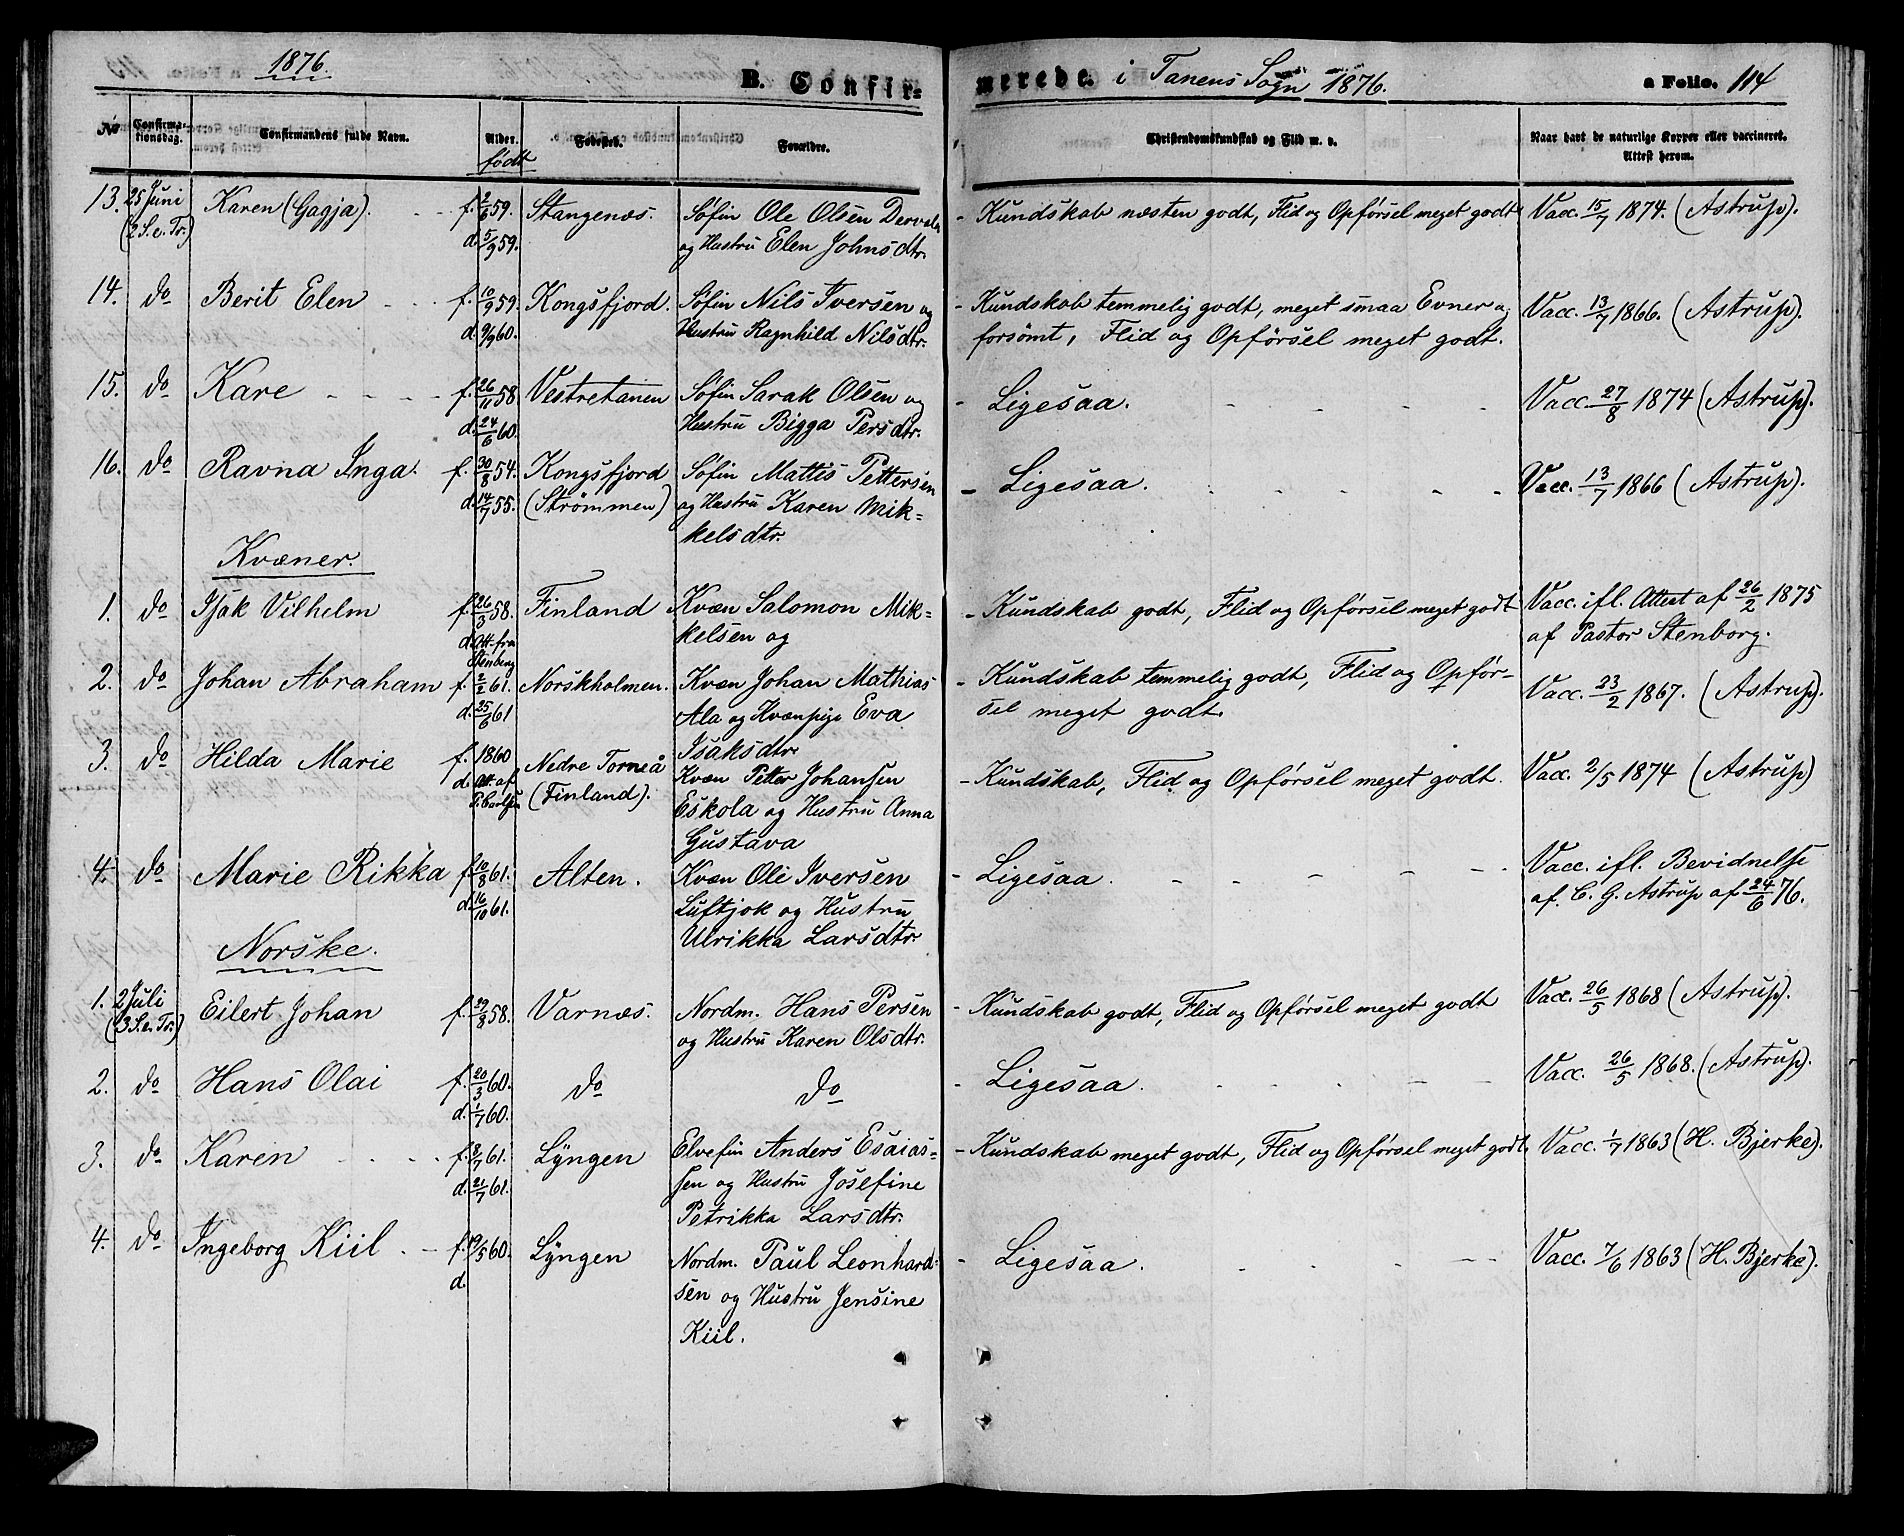 1876.
B. Confir-
merede. i Tanens Sogn 1876.
a Folio. 114
No
Confirma-
tionsdag.
Confirmandens fulde Navn.
Alder.
født
Fødested.
Forældre.
Christendomskundskab og Flid m. v.
Naar havt de naturlige Kopper eller vaccineret.
Attest herom.
13. 25 Juni Karen (Gagja). f. 2/6 59. Stangenæs. Søfin Ole Olsen - Kundskab næsten godt, Flid og Opførsel meget godt Vacc. 15/7 1874. (Astrup).
(2 S. e. Tr.) d. 5/9 59. og Hustru Elen Johnsdtr.
14. do Berit Elen f. 10/9 59. Kongsfjord. Søfin Nils Iversen og - Kundskab temmelig godt, meget smaa Evner og Vacc. 13/7 1866. (Astrup).
d. 9/9 60. Hustru Ragnhild Nilsdtr. forsömt, Flid og Opførsel meget godt.
15. do Kare f. 26/11 58 Vestretanen Søfin Sarak Olsen og - Ligesaa. Vacc. 27/8 1874 (Astrup).
d. 24/6 60. Hustru Bigga Persdtr.
16. do Ravna Inga. f. 30/8 54. Kongsfjord Søfin Mattis Pettersen - Ligesaa. Vacc. 13/7 1866 (Astrup).
d. 14/7 55. (Strømmen) og Hustru Karen Mik-
kelsdtr.
Kvæner.
1. do Isak Vilhelm f. 26/3 58. Finland Kvæn Salomon Mik- - Kundskab godt, Flid og Opførsel meget godt Vacc. ifl. Attest af 26/2 1875
d. Att. fra kelsen og af Pastor Stenborg.
Stenberg
2. do Johan Abraham f. 2/2 61. Norskholmen. Kvæn Johan Mathias - Kundskab temmelig godt, Flid og Opför- Vacc. 23/2 1867. (Astrup).
d. 25/6 61 Ala og Kvænpige Eva sel meget godt.
Isaksdtr.
3. do Hilda Marie f. 1860 Nedre Torneå Kvæn Petter Johansen - Kundskab, Flid og Opførsel meget godt. Vacc. 2/5 1874 (Astrup)
d. Att. af (Finland). Eskola og Hustru Anna
P. Carlsen Gustava
4. do Marie Rikka f. 10/8 61. Alten. Kvæn Ole Iversen - Ligesaa. Vacc. ifl. Bevidnelse
d. 16/10 61. Luftjok og Hustru af C. G. Astrup af 24/6 76.
Ulrikka Larsdtr.
Norske.
1. 2 Juli Eilert Johan f. 29/8 58. Varnæs. Nordm. Hans Persen - Kundskab godt, Flid og Opførsel meget godt Vacc. 26/5 1868 (Astrup).
(3 S. e. Tr.) og Hustru Karen Olsdtr.
2. do Hans Olai f. 20/3 60. do do - Ligesaa. Vacc. 26/5 1868. (Astrup).
d. 1/7 60.
3. do Karen f. 3/7 61. Lÿngen Elvefin Anders Esaias- - Kundskab meget godt, Flid og Opførsel meget godt. Vacc. 1/7 1863 (H. Bjerke).
d. 21/7 61. sen og Hustru Josefine
Petrikka Larsdtr.
4. do Ingeborg Kiil f. 19/5 60. Lÿngen Nordm. Paul Leonhard- - Ligesaa. Vacc. 7/6 1863 (H. Bjerke).
d. sen og Hustru Jensine
Kiil.